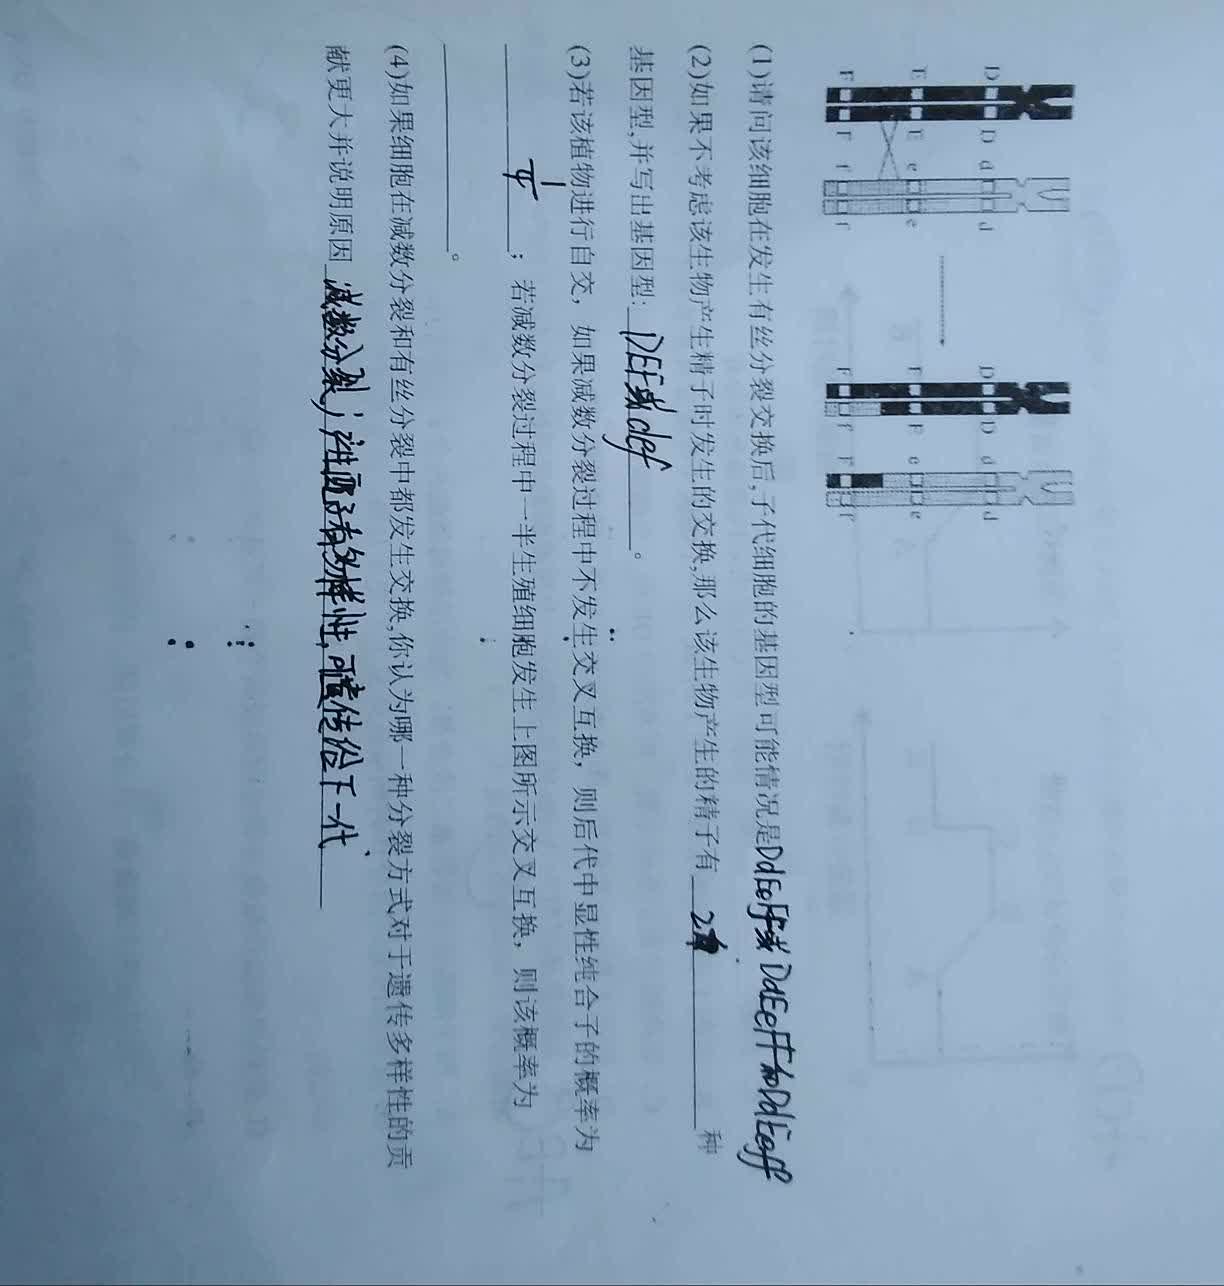 D D d d
E E e e
F F f f
D D d d
F f F f
(1)请问该细胞在发生有丝分裂交换后,子代细胞的基因型可能情况是DdEeFf或DdEeFF和DdEeff
(2)如果不考虑该生物产生精子时发生的交换,那么该生物产生的精子有 2 种
基因型,并写出基因型: DEF或def 。
(3)若该植物进行自交，如果减数分裂过程中不发生交叉互换，则后代中显性纯合子的概率为
1/4 ；若减数分裂过程中一半生殖细胞发生上图所示交叉互换，则该概率为
。
(4)如果细胞在减数分裂和有丝分裂中都发生交换,你认为哪一种分裂方式对于遗传多样性的贡
献更大并说明原因 减数分裂；产生配子有多样性,可遗传给下一代